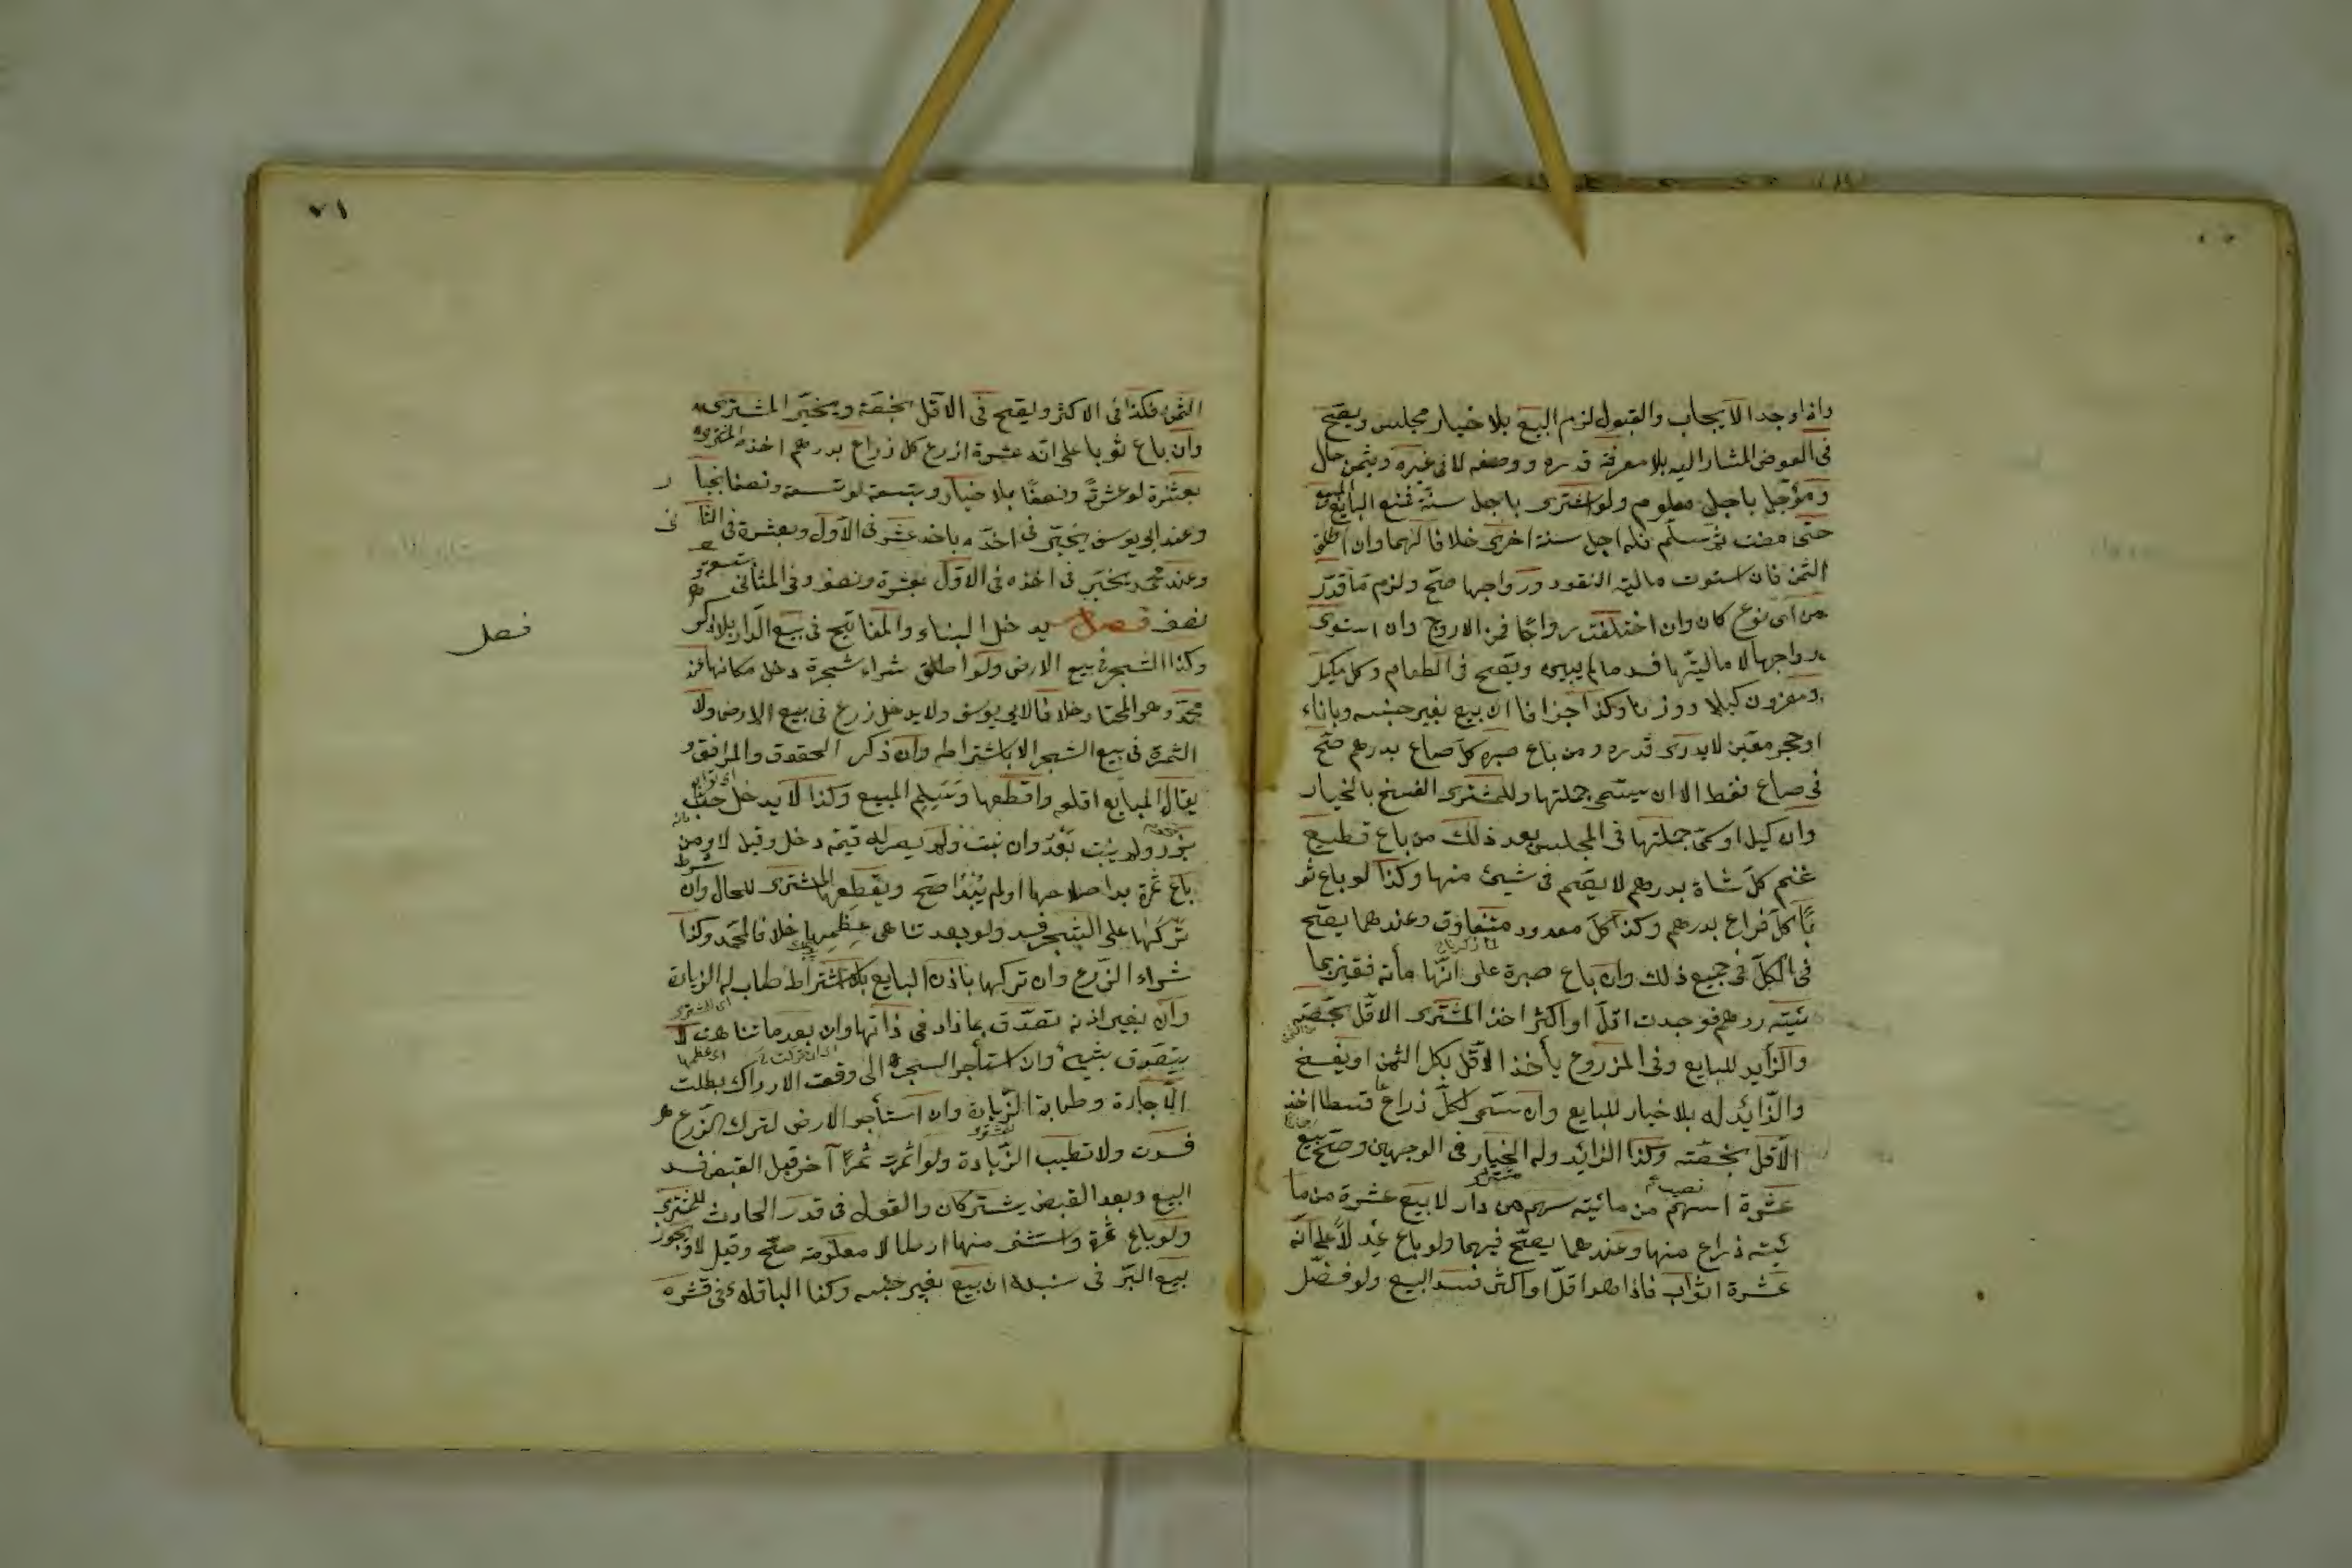 واذا وجد الايجاب والقبول لزم البيع بلا خيار مجلس ويصح
فى العوض المشار اليه بلا معرفة قدره ووصفه لا فى غيره وبثمن حال
ومؤجل باجل معلوم ولو اشترى باجل سنة فمنع البايع المبيع
حتى مضت ثم سلم فله اجل سنة اخرى خلافا لهما وان اطلق
الثمن فان استوت مالية النقود ورواجها صح ولزم ما قدر
من اى نوع كان وان اختلفت رواجا فمن الاروج وان استوى
رواجها لا ماليتها فسد ما لم يبين ويصح فى الطعام وكل مكيل
وموزون كيلا ووزنا وكذا جزافا ان بيع بغير جنسه وباناء
او حجر معين لا يدرى قدره ومن باع صبرة كل صاع بدرهم صح
فى صاع فقط الا ان يسمى جملتها وللمشترى الفسخ بالخيار
وان كيل او سمى جملتها فى المجلس بعد ذلك من باع قطيع
غنم كل شاة بدرهم لا يصح فى شيئ منها وكذا لو باع ثو
با كل ذراع بدرهم وكذا كل معدود متفاوت وعندهما يصح
فى الكل فى جميع ذلك وان باع صبرة على انها مأة قفيز بما
ئية درهم فوجدت اقل او اكثر اخذ المشترى الاقل بحصته
والزايد للبايع وفى المزروع يأخذ الاقل بكل الثمن او يفسخ
والزائد له بلا خيار للبايع وان سمى لكل ذراع قسطا اخذ
الاقل بحصته وكذا الزائد وله الخيار فى الوجهين وصح بيع
عشرة اسهم من مائية سهم من دار لا بيع عشرة من ما
ئية ذراع منها وعندهما يصح فيهما ولو باع عدلا على انه
عشرة اثواب فاذا هو اقل او اكثر فسد البيع ولو فصل
٧١
الثمن فكذا فى الاكثر ويصح فى الاقل بحصته ويخير المشترى
وان باع ثوبا على انه عشرة اذرع كل ذراع بدرهم اخذه المشترى
بعشرة لو عشرة ونصفا بلا خيار وبتسعة لو تسعة ونصفا بخيار
وعند ابى يوسف يخير فى اخذه باحد عشر فى الاول وبعشرة فى الثانى
وعند محمد يخير فى اخذه فى الاول بعشرة ونصف وفى الثانى بتسعة و
نصف فصل يدخل البناء والمفاتيح فى بيع الدار بلا ذكر
فصل
وكذا الشجر فى بيع الارض ولو اطلق شراء شجرة دخل مكانها عند
محمد وهو المختار خلافا لابى يوسف ولا يدخل زرع فى بيع الارض ولا
الثمرة فى بيع الشجر الا باشتراطه وان ذكر الحقوق والمرافق و
يقال للبايع اقلعه واقطعها وتسليم المبيع وكذا لا يدخل حب
بذر ولم ينبت بعد وان نبت ولم يصر له قيمة دخل وقيل لا ومن
باع ثمرة بدا صلاحها او لم يبد صح ويقطعها المشترى للحال وان شرط
تركها على الشجر فسد ولو بعد تناهى عظمها خلافا لمحمد وكذا
شراء الزرع وان تركها باذن البايع بلا اشتراط طاب له الزيادة
وان بغير اذنه تصدق بما زاد فى ذاتها وان بعد ما تناهت لا
يتصدق بشيئ وان استأجر الشجر الى وقت الادراك بطلت
الاجارة وطابة الزيادة وان استأجر الارض لترك الزرع
فسدت ولا تطيب الزيادة ولو اثمرت ثمرا آخر قبل القبض فسد
البيع وبعد القبض يشتركان والقول فى قدر الحادث للمشترى
ولو باع ثمرة واستثنى منها ارطالا معلومة صح وقيل لا ويجوز
بيع البر فى سنبله ان بيع بغير جنسه وكذا الباقلاء فى قشره